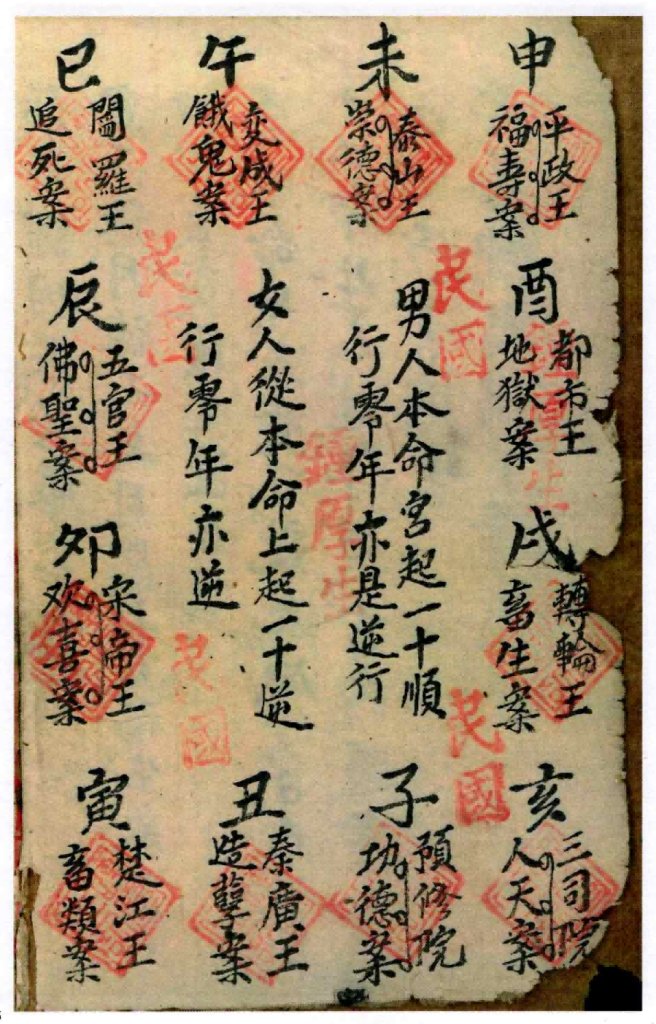 申
平政王
福壽案
酉
都市王
地獄案
戌
轉輪王
畜生案
亥
三司院
人天案
未
泰山王
崇德案
男人本命宮起一十順
行零年亦是逆行
子
預修院
功德案
午
变成王
餓鬼案
女人從本命上起一十逆
行零年亦逆
丑
秦廣王
造孽案
巳
閻羅王
追死案
辰
五官王
佛聖案
卯
宋帝王
欢喜案
寅
楚江王
畜類案
鍾厚生
民國
民國
鍾厚生
民國
民國